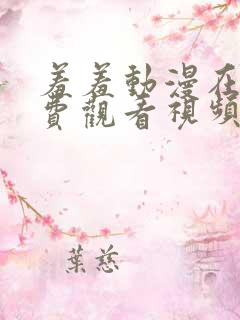 羞羞動漫在
費觀看視頻
葉慈